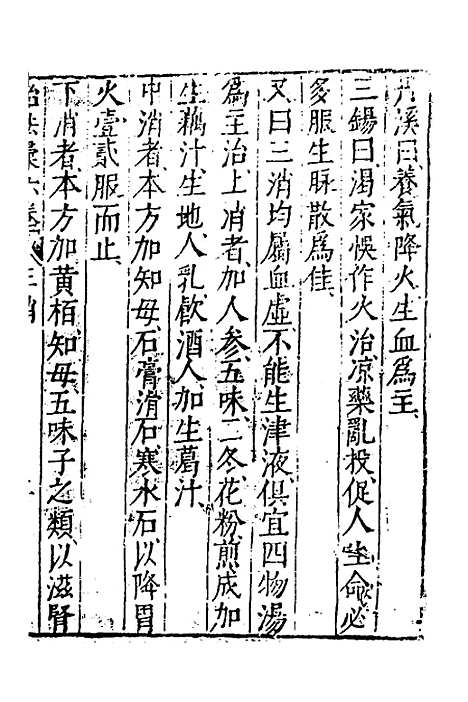 丹溪曰、養氣降火生血為主、
三錫曰、渴家悞作火治、凉藥亂投、促人生命、必
多服生脉散為佳、
又曰三消均屬血虛、不能生津液、俱宜四物湯
為主治、上消者、加人參、五味、二冬、花粉煎成加
生藕汁、生地、人乳、飲酒人加生葛汁
中消者本方加知母、石膏、滑石、寒水石、以降胃
火壹貳服而止、
下消者本方加黄栢、知母、五味子之類、以滋腎
治法彙六卷 三消